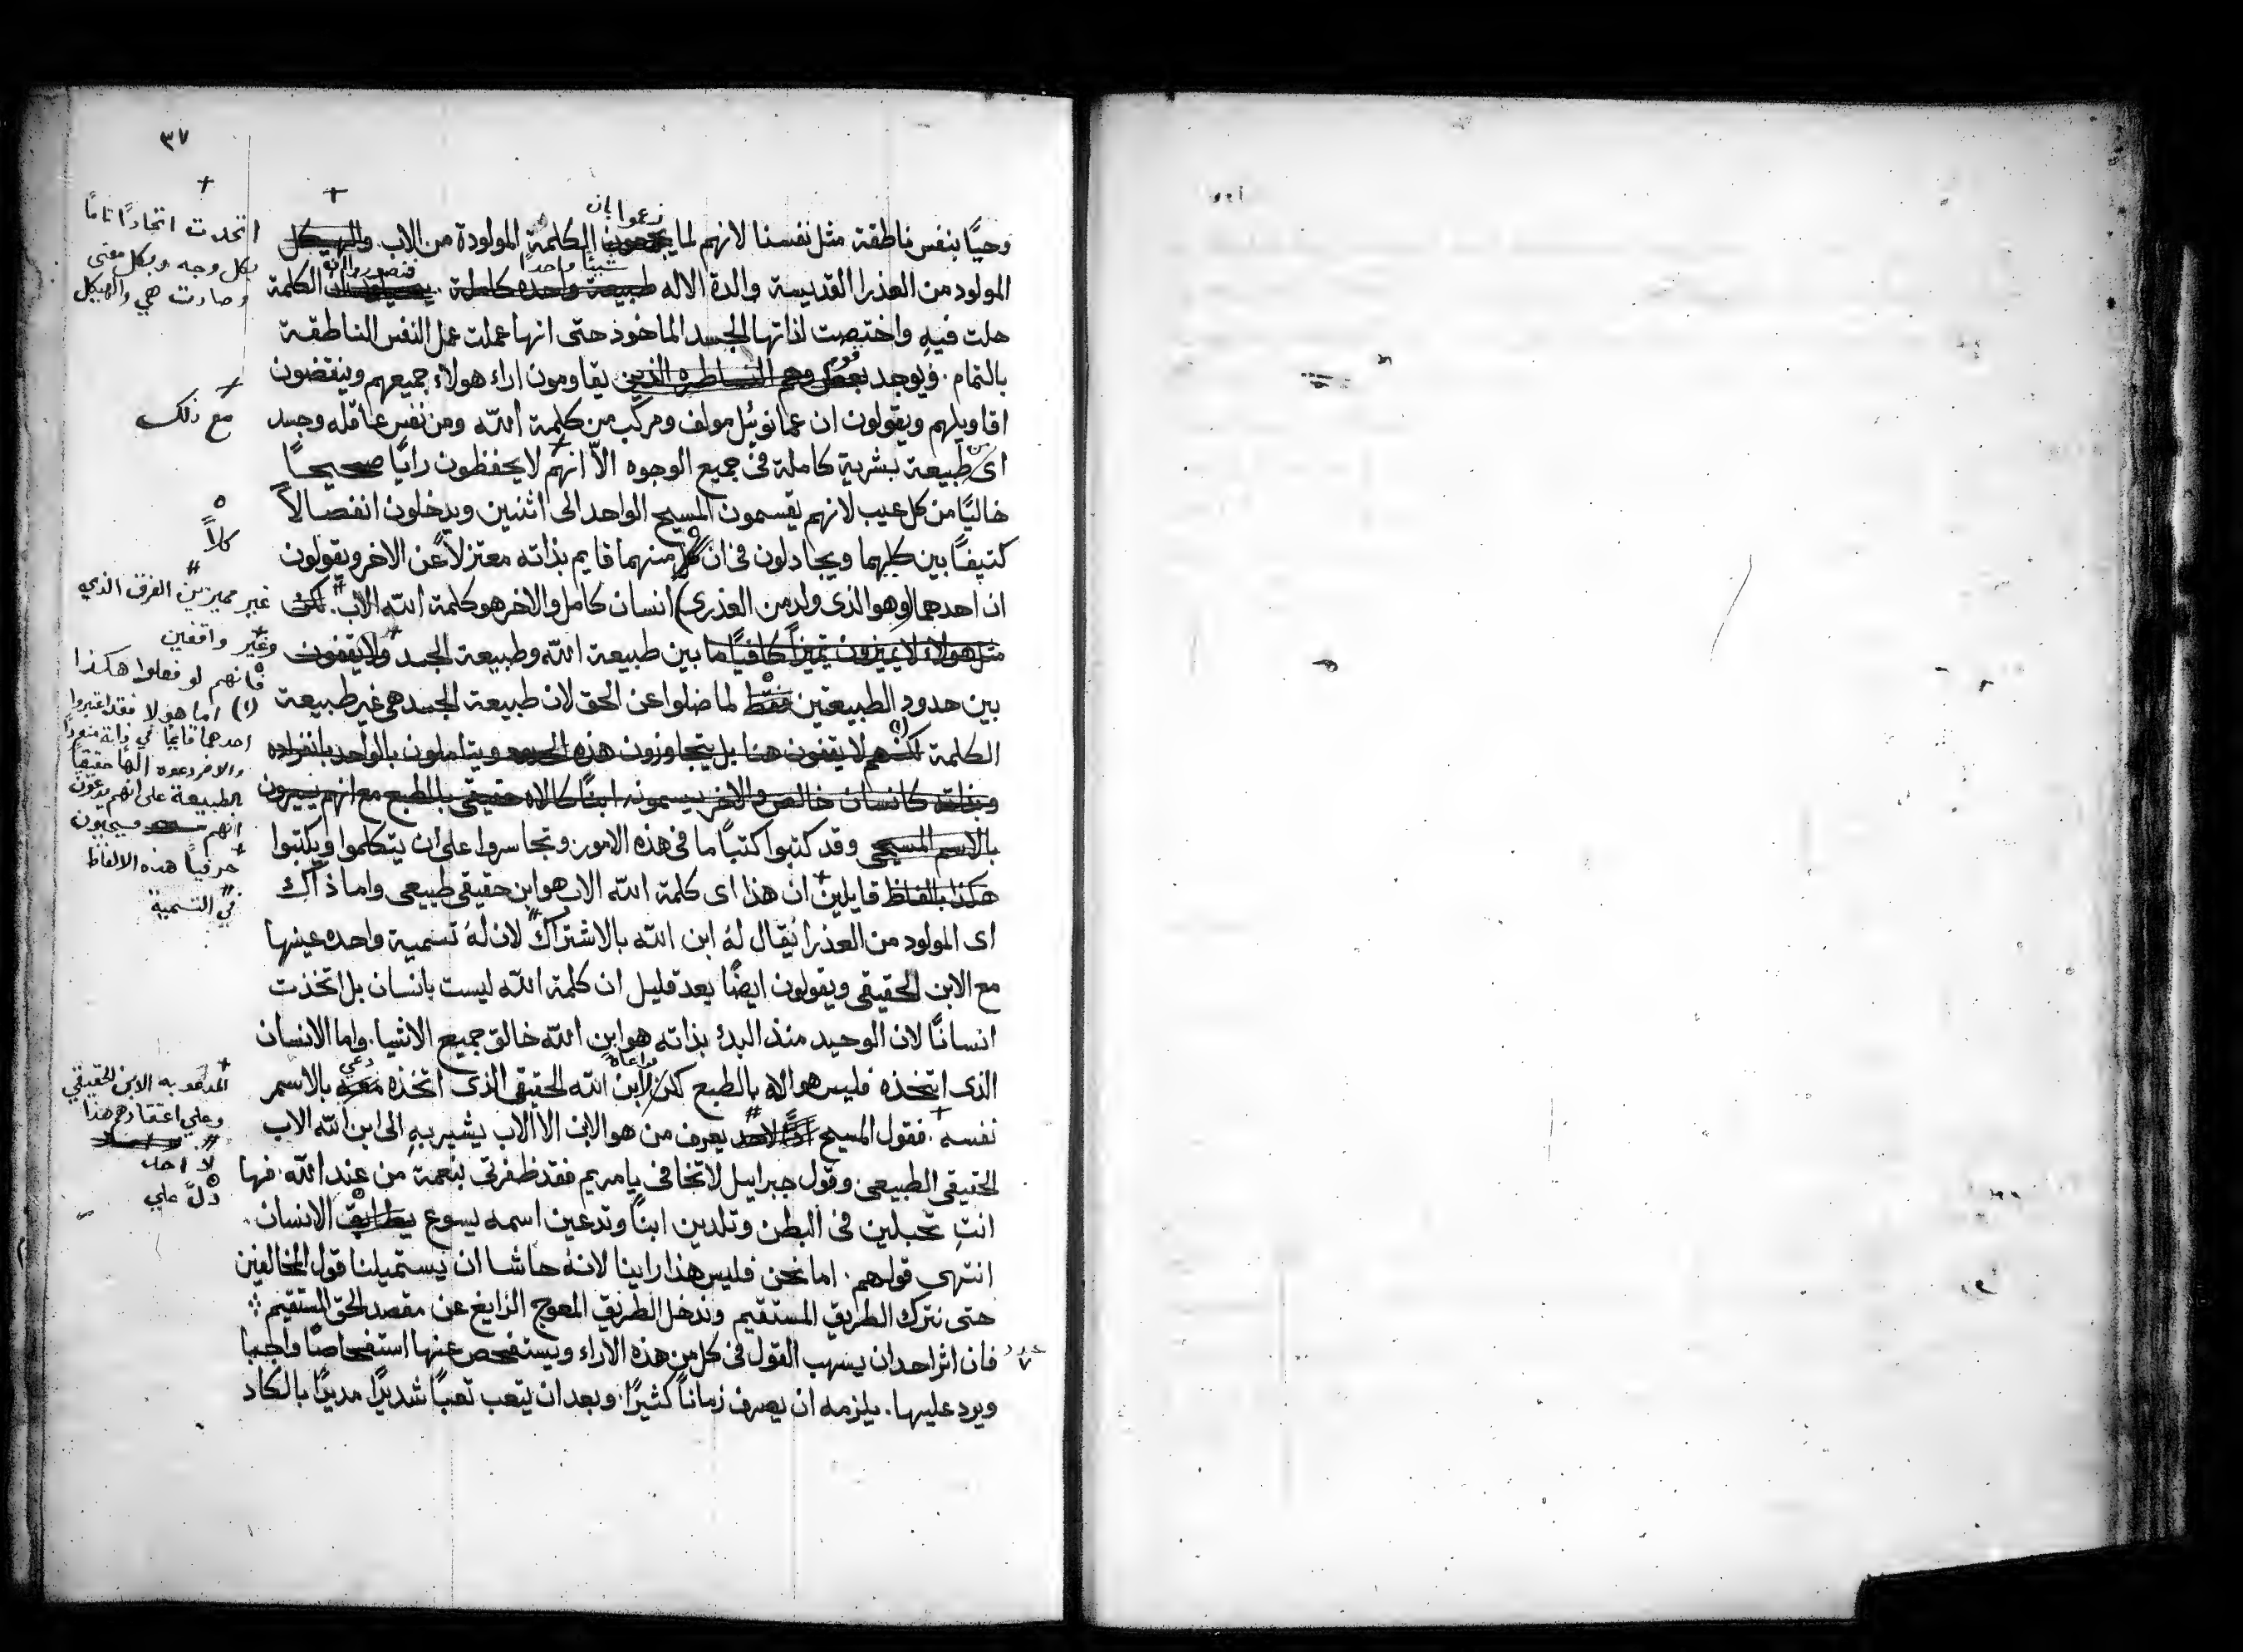 ٣٧
زعموا بان
وحيًا بنفس ناطقة مثل نفسنا لانهم لما يجمعون الكلمة المولودة من الاب والهيكل
شيئًا واحدًا فتصوروا ان
المولود من العذرا القديسة والدة الاله طبيعة واحده كاملة الكلمة
حلت فيهِ واختصت لذاتها الجسد الماخوذ حتى انها عملت عمل النفس الناطقة
قوم
بالتمام. ويوجد بعض وهم النساطره الذين يقاومون اراء هولاء جميعهم وينقضون
اقاويلهم ويقولون ان عمانوئيل مولف ومركب من كلمة الله ومن نفسٍ عاقله وجسد
من
اى طبيعة بشرية كاملة فى جميع الوجوه الاّ انهم لا يحفظون رايًا صحيحًا
خاليًا من كل عيب لانهم يقسمون المسيح الواحد الى اثنين ويدخلون انفصالاً
كثيفًا بين كليهما ويجادلون فى ان كل منهما قايم بذاته معتزلاً عن الاخر ويقولون
ان احدهما (وهو الذى ولد من العذرى) انسان كامل والاخر هو كلمة الله الاب. لكن
مثل هولاء لا يميزون تميزًا كافيًا ما بين طبيعة الله وطبيعة الجسد ولا يقفون
بين حدود الطبيعتين فقط لما ضلوا عن الحق لان طبيعة الجسد هى غير طبيعة
(١)
الكلمة لكنهم لا يقفون هنا بل يتجاوزون هذه الحدود ويتاملون بالواحد بانفراده
وبذاته كانسان خالص والاخر يسمونه ابنًا كالاه حقيقى بالطبع مع انهم يسيرون
بالاسم المسيحى وقد كتبوا كتبًا ما فى هذه الامور وتجاسروا على ان يتكلموا ويكتبوا
هكذا بالفاظ قايلين ان هذا اى كلمة الله الاب هو ابن حقيقى طبيعى واما ذاك
اى المولود من العذرا يُقال لهُ ابن الله بالاشتراك لان لهُ تسمية واحده عينها
مع الابن الحقيقى ويقولون ايضًا بعد قليل ان كلمة الله ليست بانسان بل اتخذت
انسانًا لان الوحيد منذ البدء بذاته هو ابن الله خالق جميع الاشيا. واما الانسان
دعي
الذى اتخذه فليس هو الاه بالطبع لكن لابن الله الحقيقى الذى اتخذه معه بالاسم
نفسه. فقول المسيح لاحد يعرف من هو الابن الا الاب يشير بهِ الى ابن الله الاب
الحقيقى الطبيعى. وقول جبراييل لا تخافى يا مريم فقد ظفرتى بنعمة من عند الله. فها
انتِ تحبلين فى البطن وتلدين ابنًا وتدعين اسمه يسوع يطابق الانسان.
انتهى قولهم. اما نحن فليس هذا راينا لانهُ حاشا ان يستميلنا قول المخالفين
حتى نترك الطريق المستقيم وندخل الطريق المعوج الزايغ عن مقصد الحق المستقيم
فان اثر احد ان يسهب القول فى كل من هذه الاراء ويستفحص عنها استفحاصًا واجبا
ويرد عليها. يلزمه ان يصرف زمانًا كثيرًا. وبعد ان يتعب تعبًا شديدًا مديدًا بالكاد
اتحدت اتحادًا تامًا
بكل وجه وبكل معنى
وصارت هي والهيكل
مع ذلك
كلاً
غير مميزين الفرق الذي
وغير واقفين
فانهم لو فعلوا هكذا
(١) اما هولا فقد اعتبروا
احدهما قايمًا في ذاته منفردًا
والاخر دعوه الهًا حقيقيًا
بالطبيعة على انهم يدعون
انهم مسيحيون
حرفيًا هذه الالفاظ
في التسمية
المدعو به الابن الحقيقي
وعلي اعتقادهم هذا
لا احد
دلّ علي